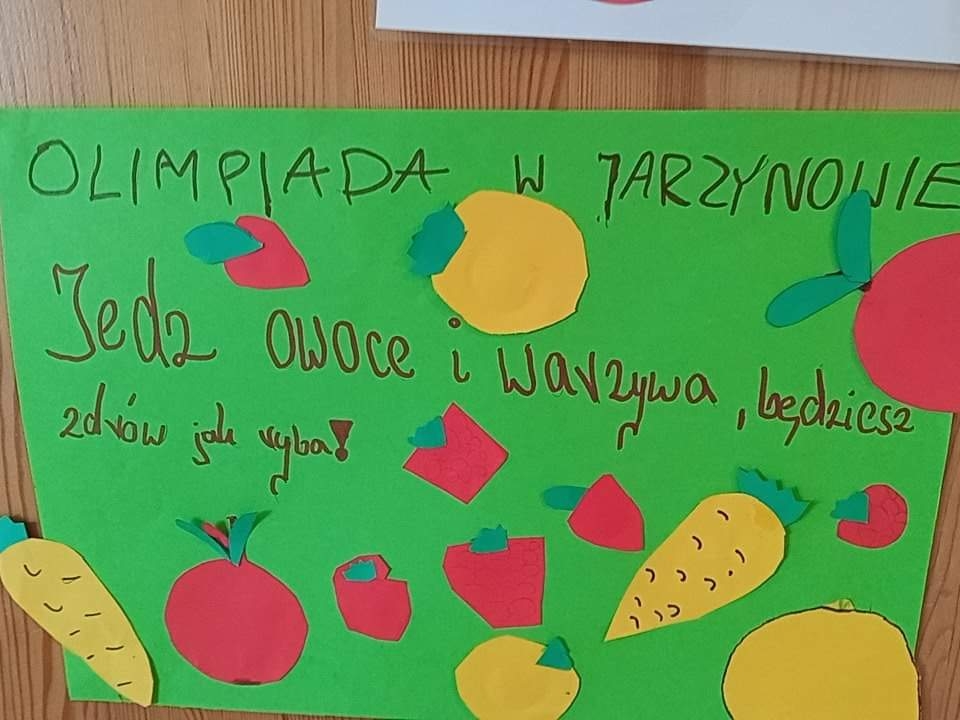 OLIMPIADA W JARZYNOWIE
Jedz owoce i warzywa, będziesz
zdrów jak ryba!